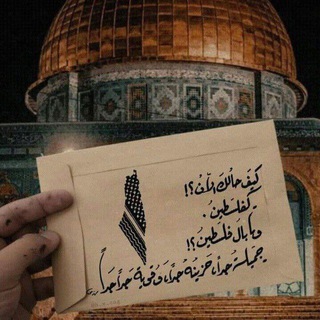 كيفَ حالكَ الآن؟!
كفلسطينُ .
وما بالُ فلسطينُ؟!
جميلة جداً، حزينة جداً، وقوية جداً جداً